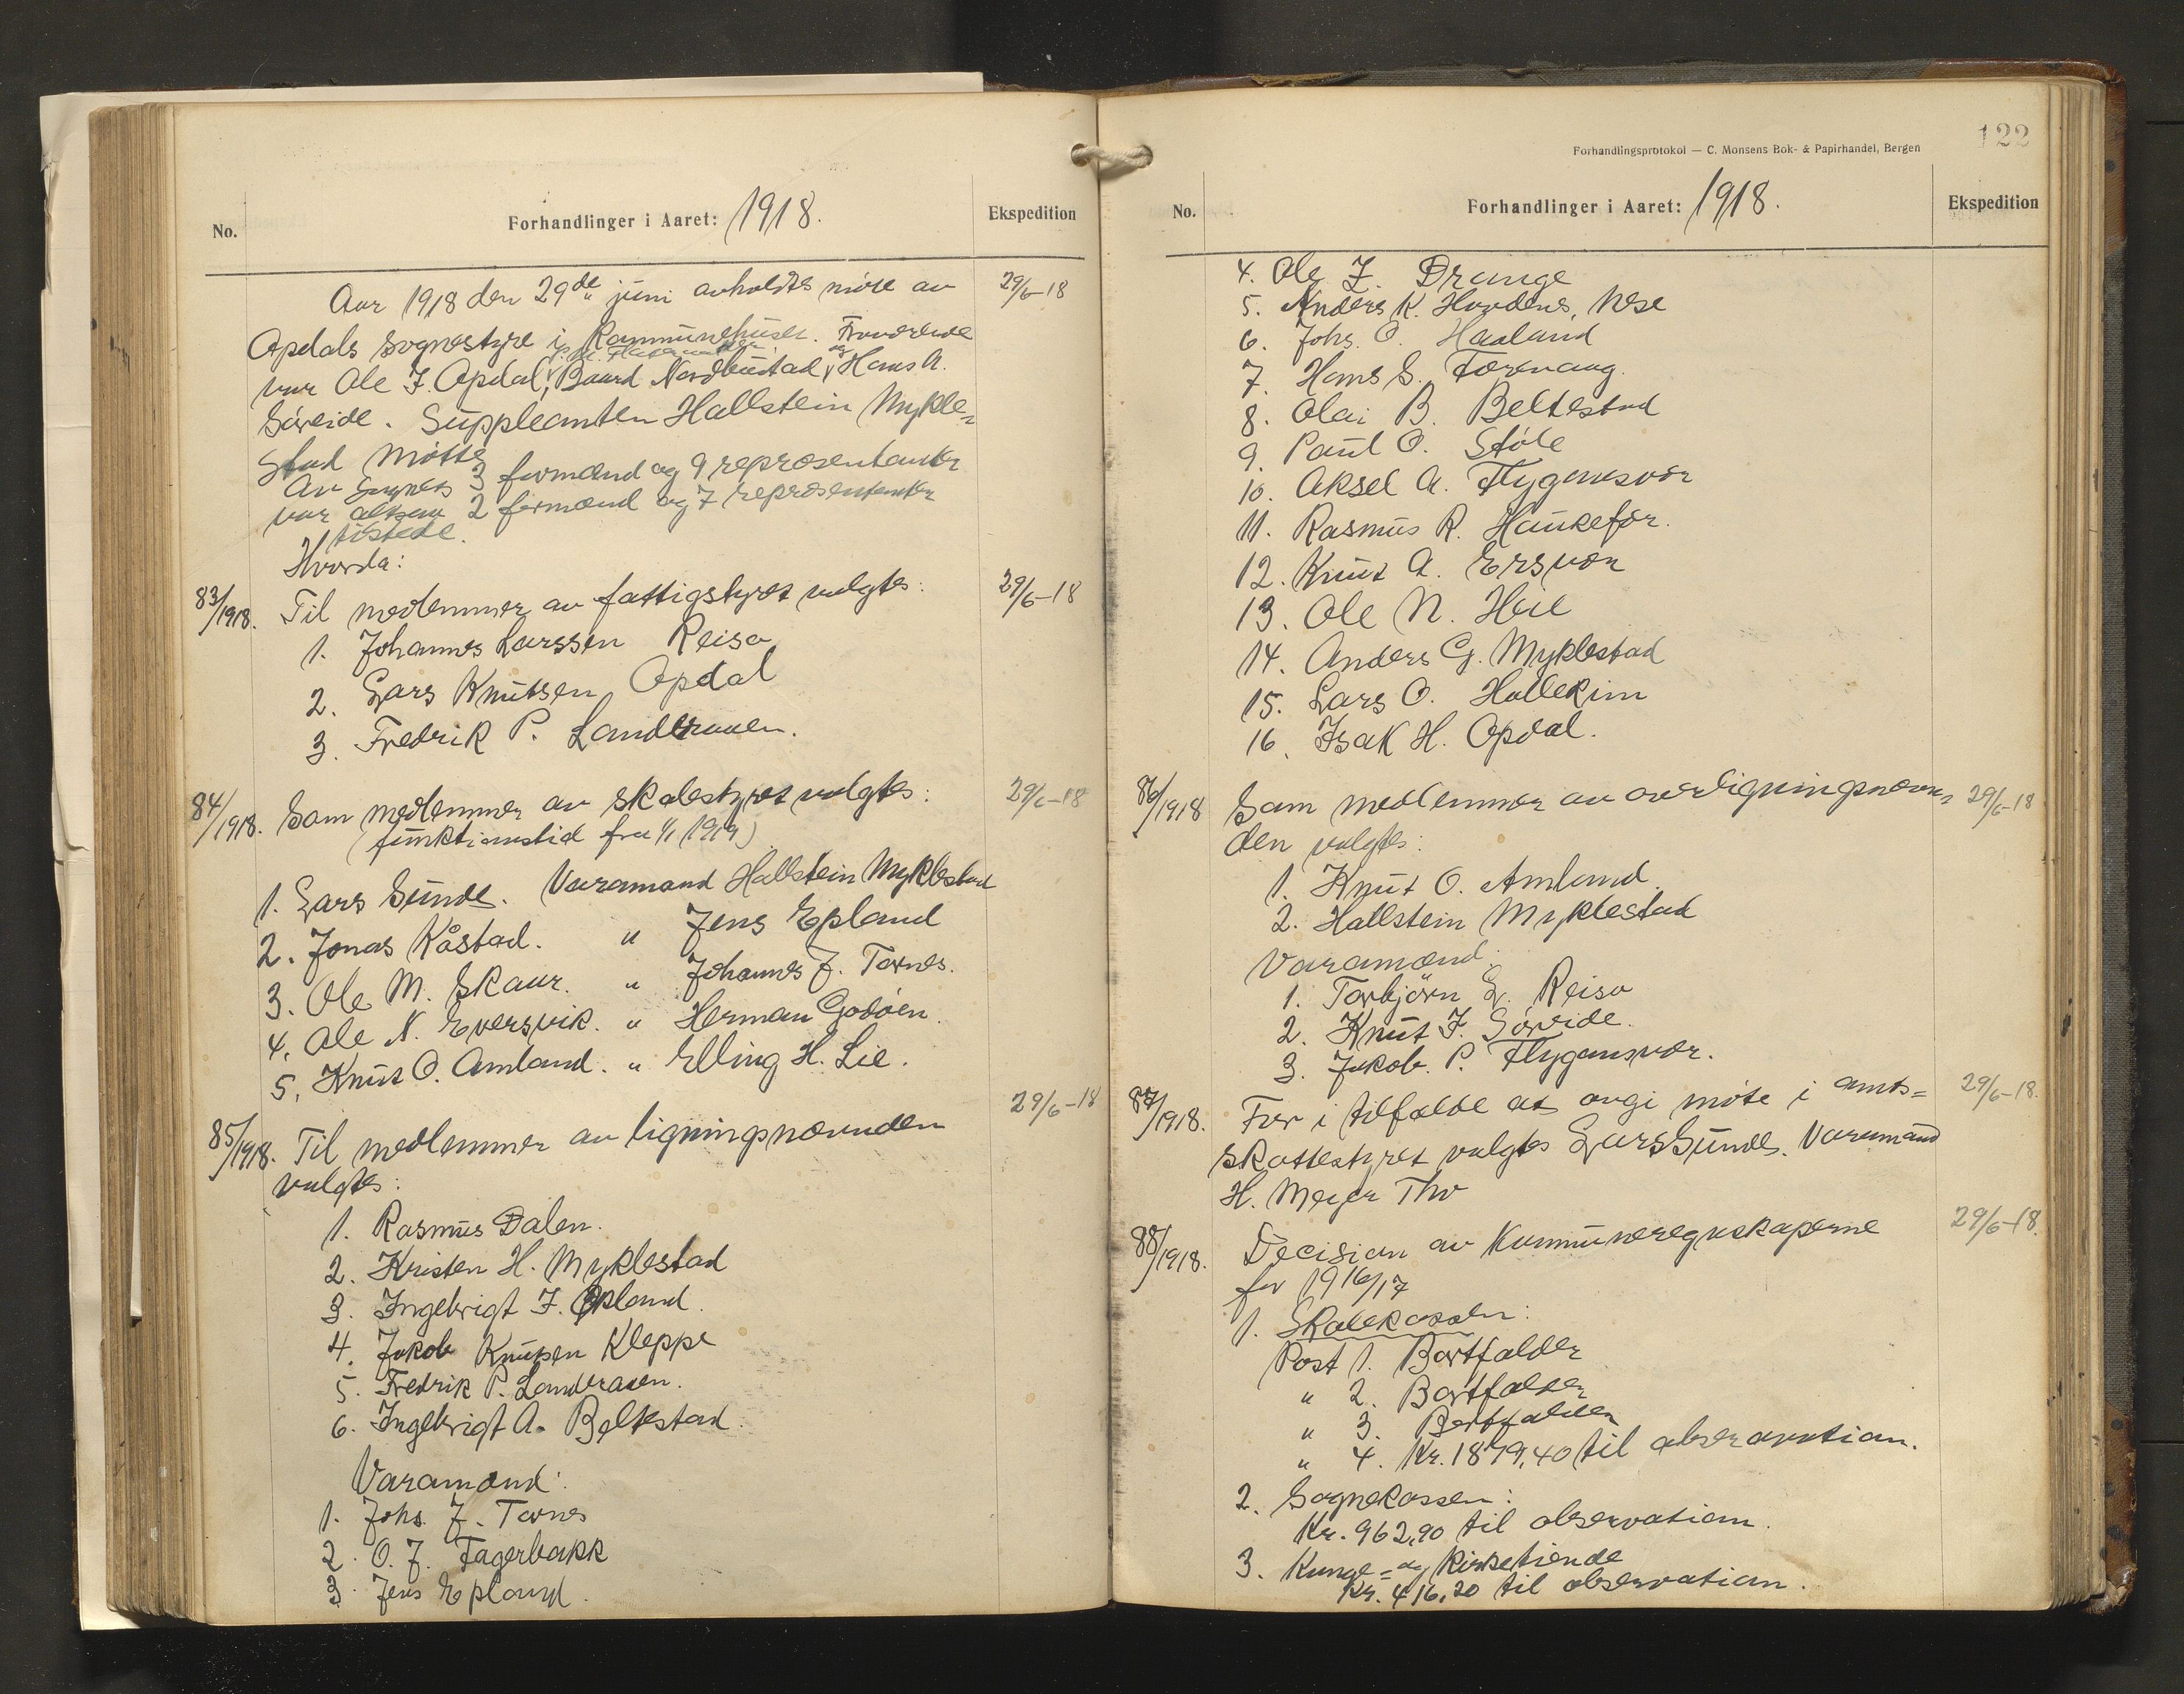 No.
Forhandlinger i Aaret: 1918.
Ekspedition
Aar 1918 den 29de juni avholdtes møte av
29/6-18
Opdals sognestyre i Kommunehuset. Fraværende
var Ole J. Opdal, Baard Nordbustad og Hans A.
Søreide. Suppleanten Hallstein Mykle-
stad møtte
Av sognets 3 formænd og 9 repræsentanter
var altsaa 2 formænd og 7 repræsentanter
tilstede.
Hvorda:
83/1918. Til medlemmer av fattigstyret valgtes:
29/6-18
1. Johannes Larssen Reisa
2. Lars Knutsen Opdal
3. Fredrik P. Landeraaen.
84/1918. Som medlemmer av skolestyret valgtes:
29/6-18
(funktionstid fra 1/1 1919)
1. Lars Sunde. Varamand Hallstein Myklestad
2. Jonas Kåstad. " Jens Epland
3. Ole M. Skaar. " Johannes J. Tornes.
4. Ole N. Eversvik. " Herman Godøen.
5. Knut O. Amland. " Elling H. Lie.
85/1918. Til medlemmer av ligningsnævnden
29/6-18
valgtes:
1. Rasmus Dalen.
2. Kristen H. Myklestad
3. Ingebrigt J. Epland.
4. Jakob Knutsen Kleppe
5. Fredrik P. Landeraaen.
6. Ingebrigt A. Beltestad.
Varamænd:
1. Johs. J. Tornes
2. O. J. Fagerbakk
3. Jens Epland.
122
Forhandlingsprotokol — C. Monsens Bok- & Papirhandel, Bergen
No.
Forhandlinger i Aaret: 1918.
Ekspedition
4. Ole J. Drange
5. Anders K. Hovdenes, Nese
6. Johs. O. Haaland
7. Hans S.
8. Olai B. Beltestad
9. Paul O. Støle
10. Aksel A. Flygansvær
11. Rasmus R. Haukefær.
12. Knut A. Ersvær
13. Ole N. Heie
14. Anders G. Myklestad
15. Lars O. Hollekim
16. Isak H. Opdal.
86/1918 Som medlemmer av overligningsnævn-
29/6-18
den valgtes:
1. Knut O. Amland.
2. Hallstein Myklestad
Varamænd:
1. Torbjørn L. Reisa
2. Knut J. Søreide.
3. Jakob P. Flygansvær.
87/1918. For i tilfælde at avgi møte i amts-
29/6-18.
skattestyret valgtes Lars Sunde. Varamand
H. Meyer Tho
88/1918. Decision av Kommuneregnskaperne
29/6-18.
for 1916/17
1. Skolekassen:
Post 1. Bortfalder
" 2. Bortfalder
" 3. Bortfalder
" 4. Kr. 1879,40 til observation.
2. Sognekassen:
Kr. 962,90 til observation.
3. Konge- og Kirketiende
Kr. 416,20 til observation.